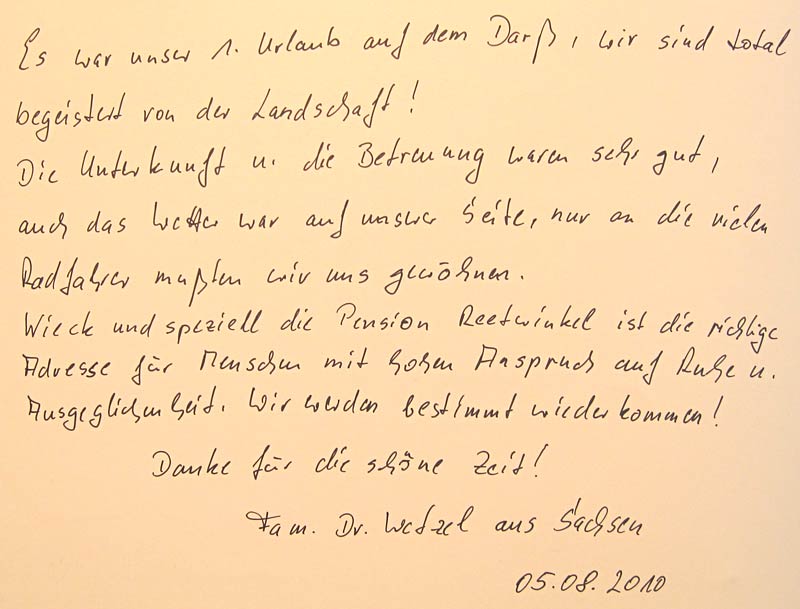 Es war unser 1. Urlaub auf dem Darß, wir sind total
begeistert von der Landschaft!
Die Unterkunft u. die Betreuung waren sehr gut,
auch das Wetter war auf unserer Seite, nur an die vielen
Radfahrer mußten wir uns gewöhnen.
Wieck und speziell die Pension Reetwinkel ist die richtige
Adresse für Menschen mit hohen Anspruch auf Ruhe u.
Ausgeglichenheit. Wir werden bestimmt wiederkommen!
Danke für die schöne Zeit!
Fam. Dr. Wetzel aus Sachsen
05.08.2010